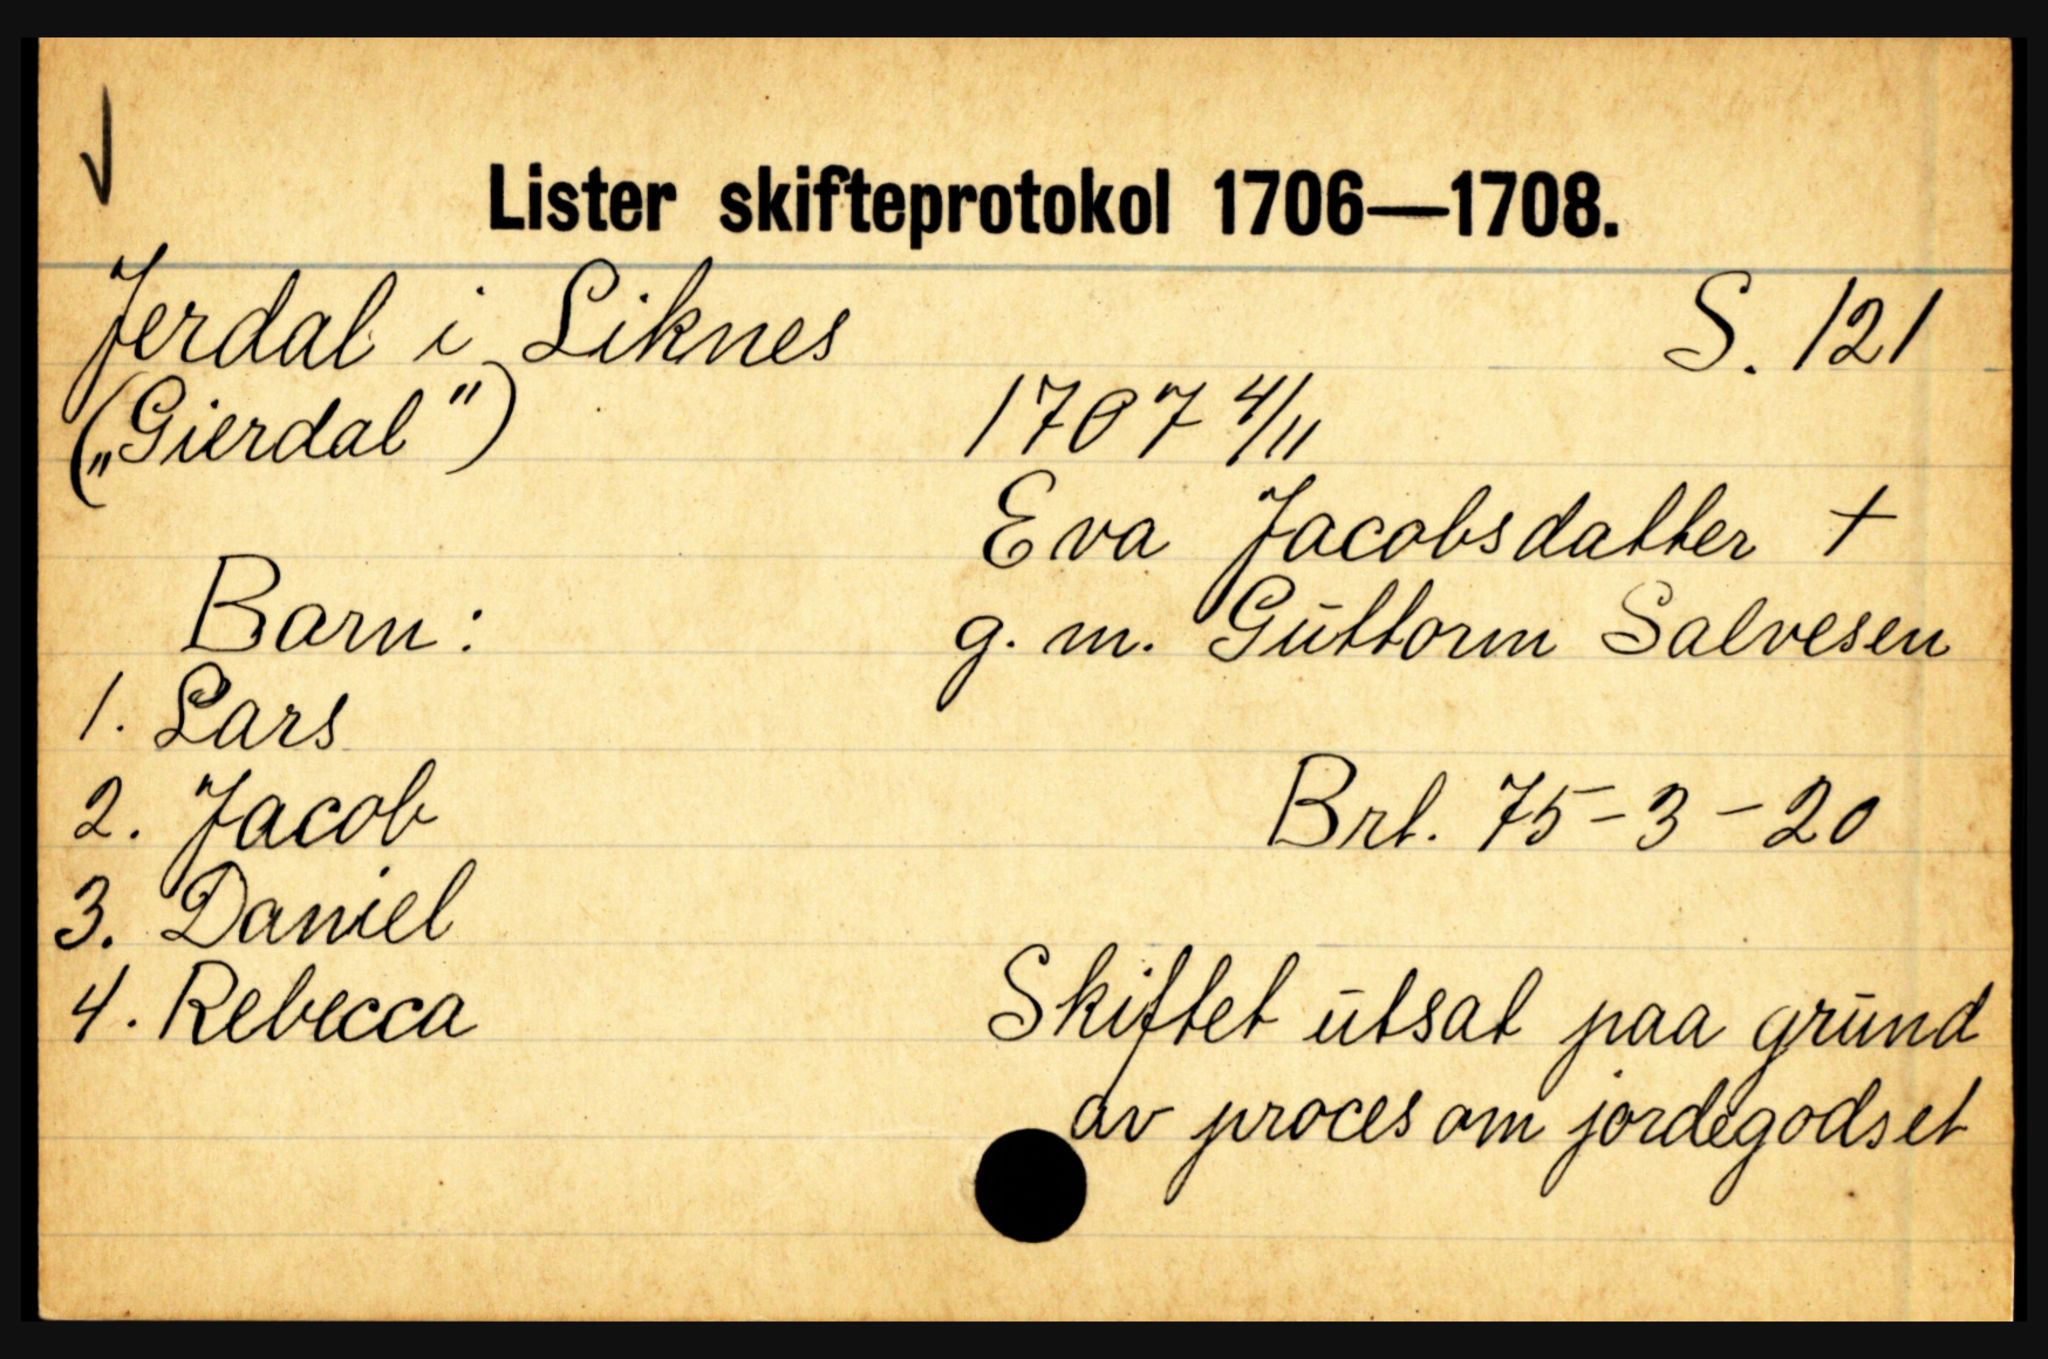 Lister skifteprotokol 1706—1708.
Jerdal i Liknes S. 121
(„Gierdal") 1707 4/11
Eva Jacobsdatter +
Barn: g. m. Gūttorm Salvesen
1. Lars
2. Jacob Brt. 75-3-20
3. Daniel
4. Rebecca Skiftet ūtsat paa grūnd
av proces om jordegodset